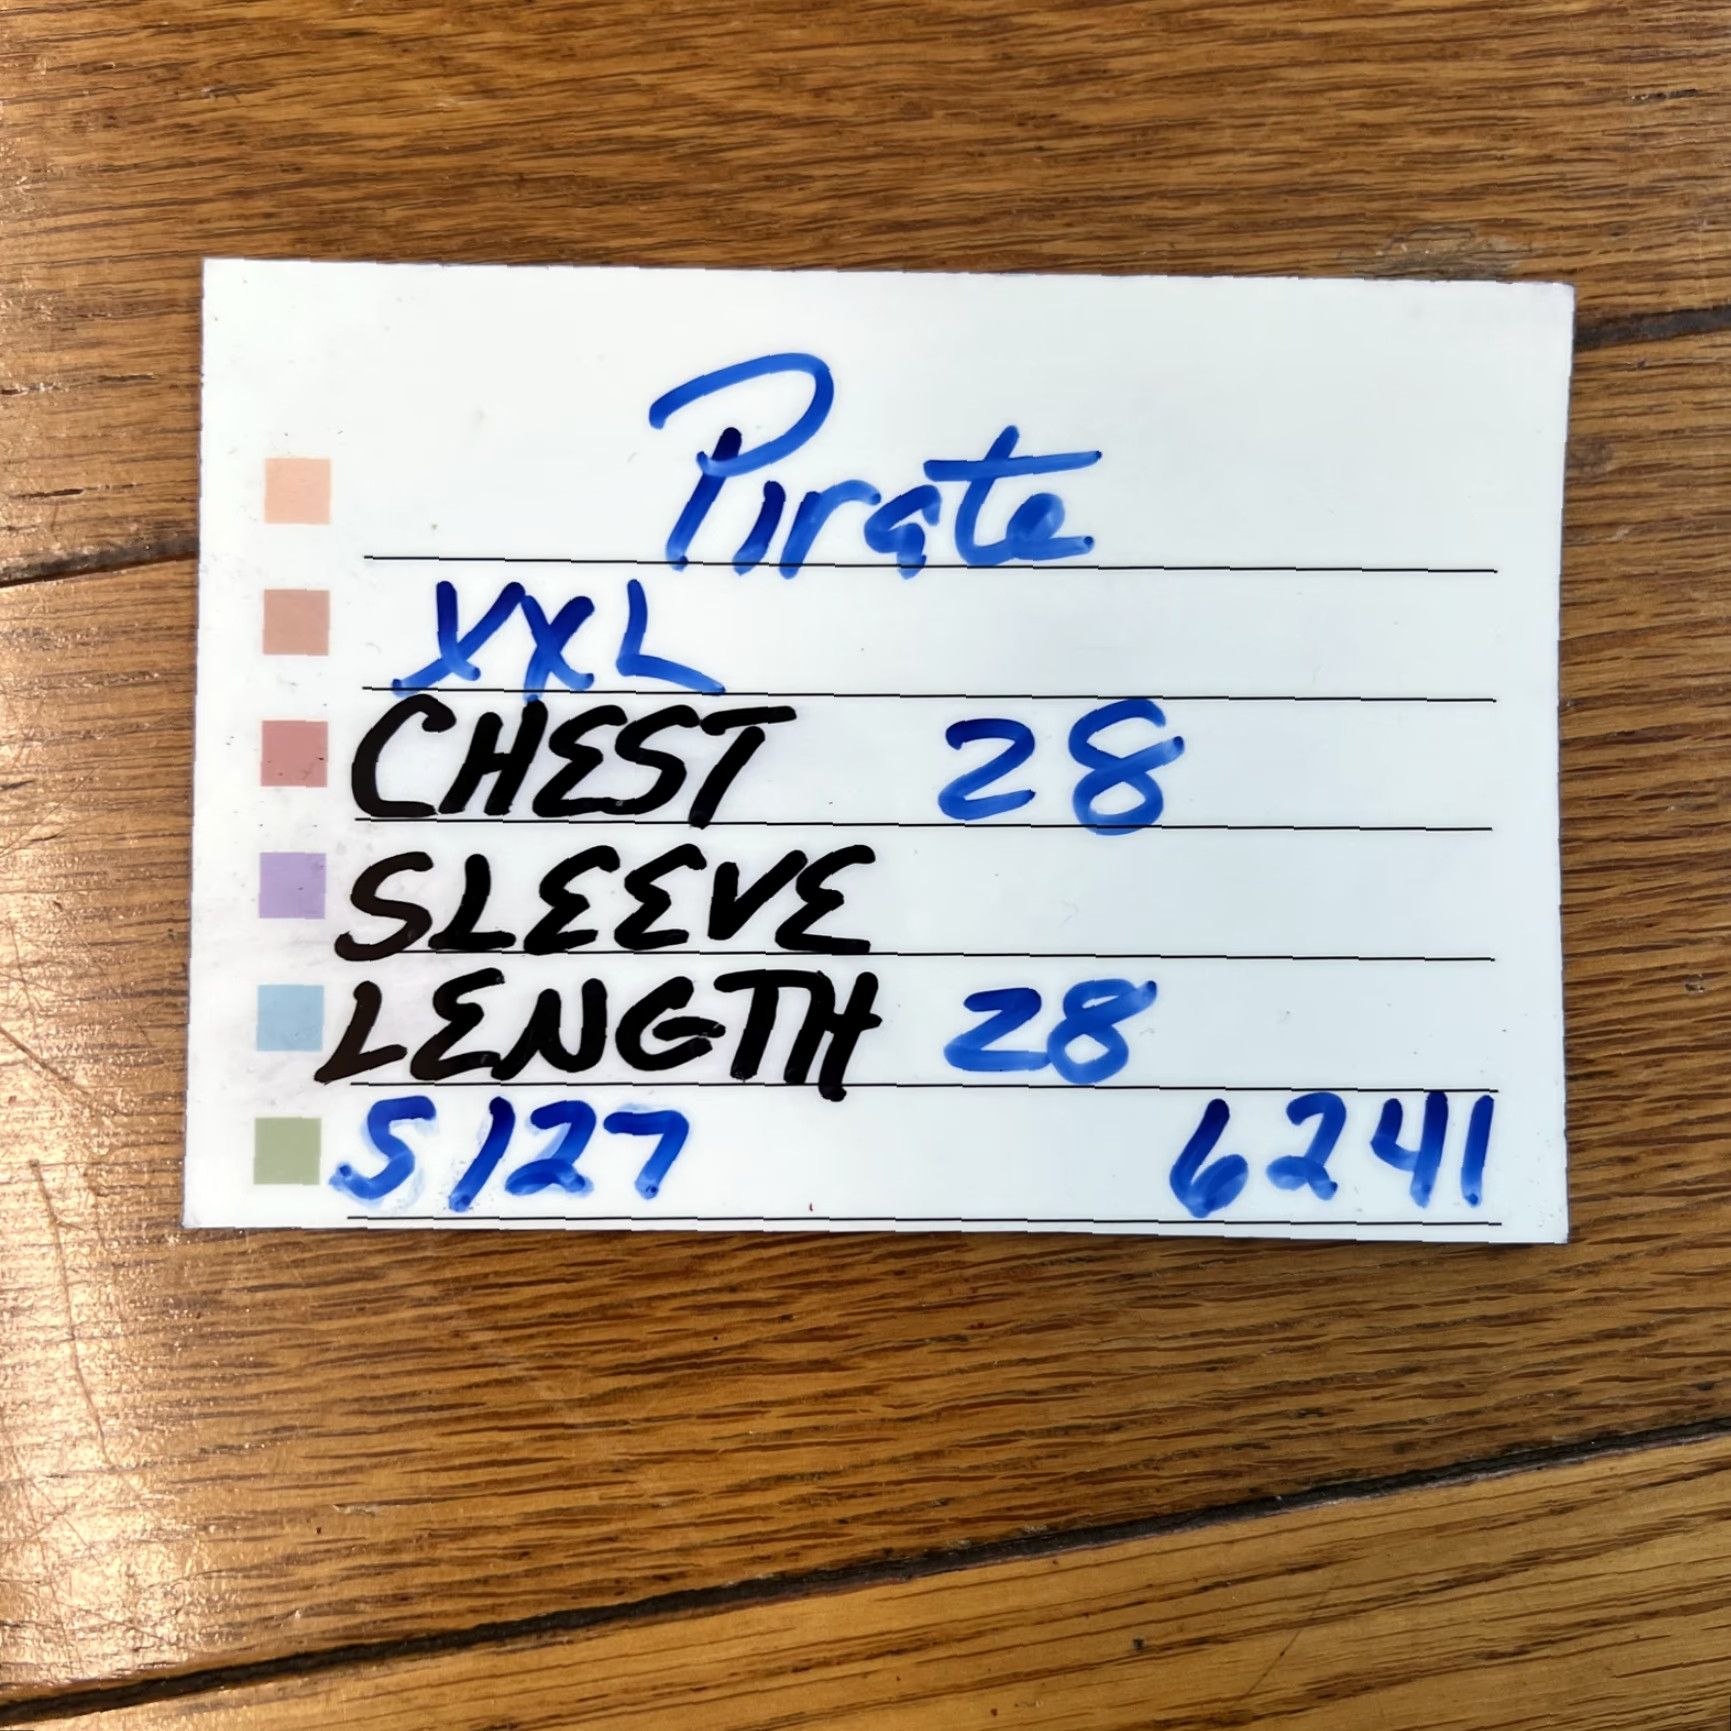 Pirate
XXL
CHEST 28
SLEEVE
LENGTH 28
5/27 6241